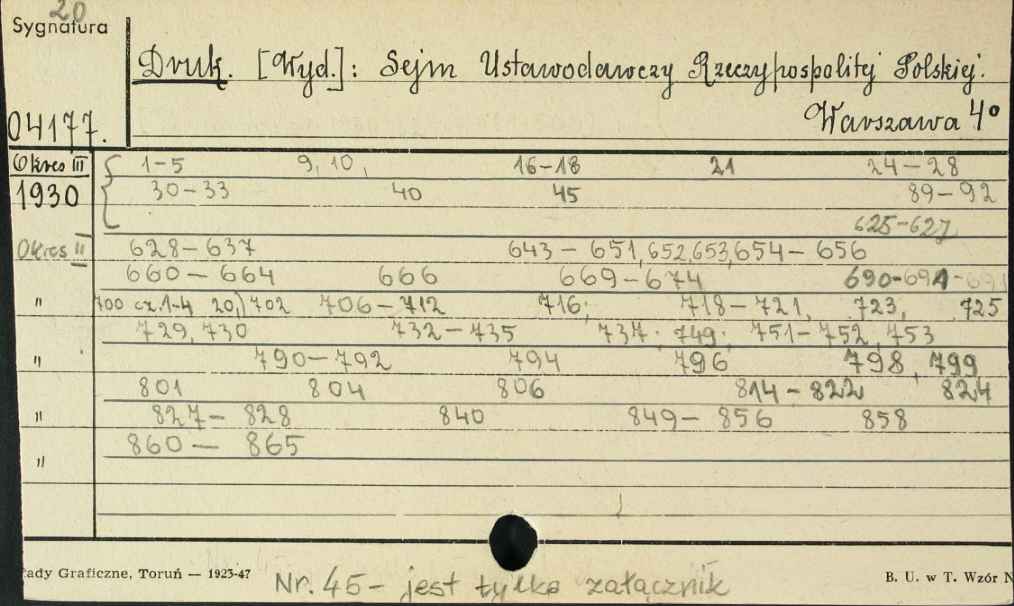 20
Sygnatura
Druk. [Wyd.]: Sejm Ustawodawczy Rzeczypospolitej Polskiej.
04177. Warszawa 4°
Okres III 1-5 9, 10, 16-18 21 24-28
1930 30-33 40 45 89-92
625-627
Okres II 628-637 643-651, 652, 653, 654-656
660-664 666 669-674 690-691-
" 700 cz. 1-4 20,) 702 706-712 716; 718-721, 723, 725
729, 730 732-435 737; 749; 751-752, 753
" 790-792 794 796 798, 799
801 804 806 814-822 824
" 827-828 840 849-856 858
860-865
"
ady Graficzne, Toruń — 1923-47 B. U. w T. Wzór N
Nr. 45 - jest tylko załącznik